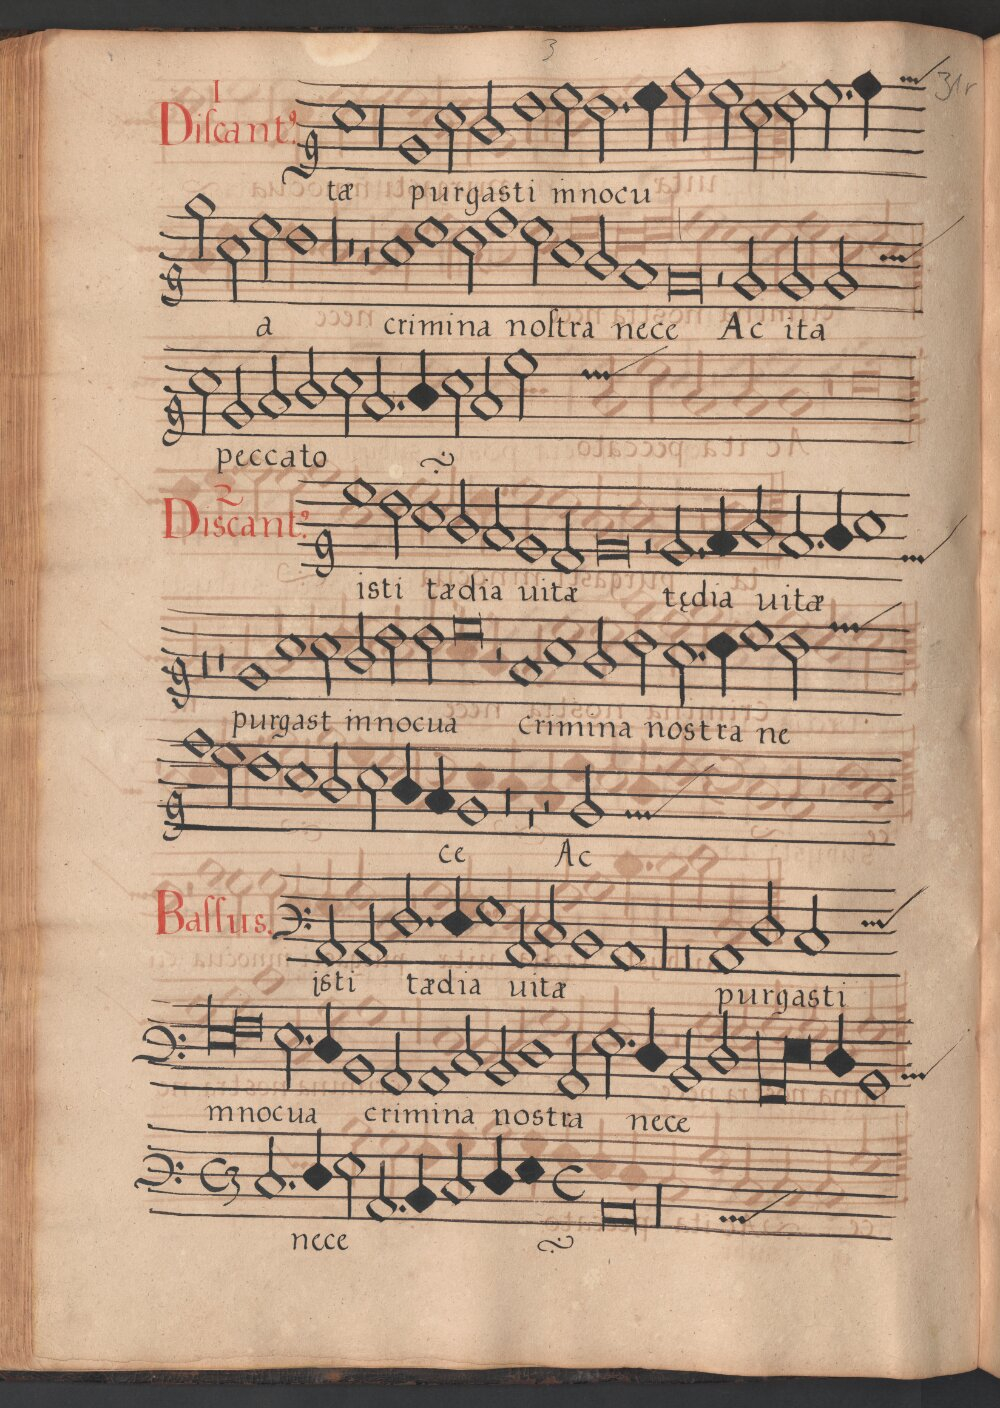 3
31r
1
Discant9.
tæ purgasti innocu
a crimina nostra nece Ac ita
peccato
2
Discant9.
isti tædia uitæ tędia uitæ
purgast innocua crimina nostra ne
ce Ac
Bassus.
isti tædia uitæ purgasti
innocua crimina nostra nece
nece